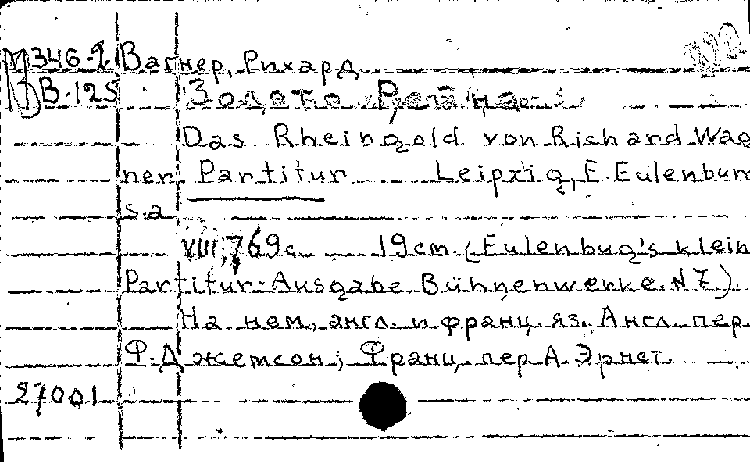 М346-2 Вагнер, Рихард
В-125 Золото Рейна
Das Rheingold von Richard Wag
ner. Partitur Leipzig, E. Eulenbur
s.a
VIII, 769с 19см. (Eulenbug's klein
Partitur-Ausgabe Bühnenwerke. N 7).
На нем., англ. и франц. яз. Англ. пер
Ф. Джемсон; Франц. пер А. Эрнст
27001